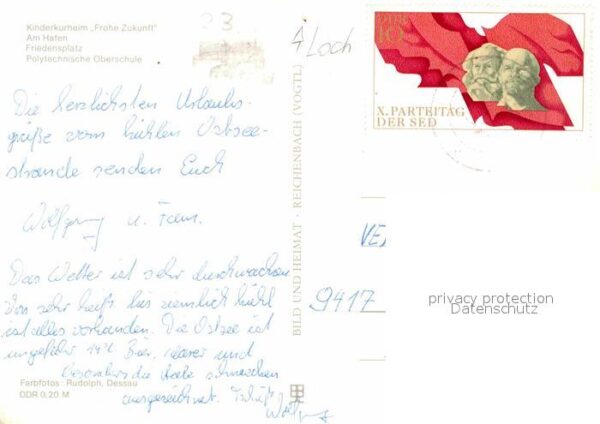 Kinderkurheim „Frohe Zukunft"
Am Hafen
Friedensplatz
Polytechnische Oberschule
23
4 Loch
DDR
10
X. PARTEITAG
DER SED
Die herzlichsten Urlaubs-
grüße vom kühlen Ostsee-
strande senden Euch
Wolfgang u. Fam.
Das Wetter ist sehr durchwachsen
Von sehr heiß bis ziemlich kühl
ist alles vorhanden. Die Ostsee ist
ungefähr 19°C. Bier, und
besonders die schmecken
ausgezeichnet. Tschüß
Wolfgang
BILD UND HEIMAT · REICHENBACH (VOGTL)
9417
privacy protection
Datenschutz
Farbfotos: Rudolph, Dessau
DDR 0,20 M